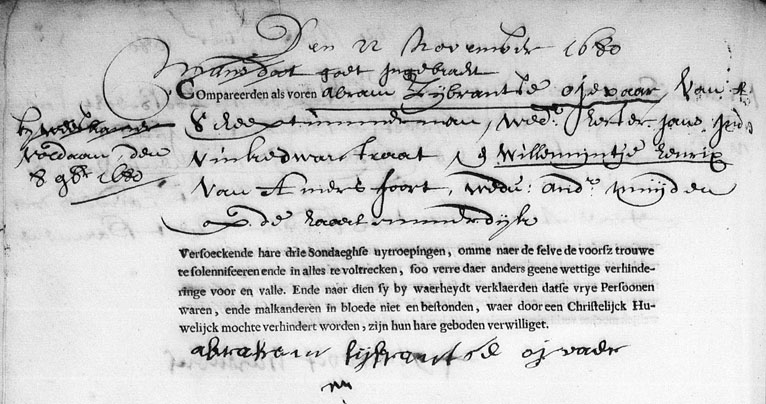 Den 22 November 1680
goet Ingebracht
Compareerden als voren abram Sijbrantse ojevaar, van A
Scheeptimmerman, wedr: hester Jans, in d
vinkedwarstraat, & Willemijntje henrix
van Amersfoort, wedu: andr muijden
op de haarlemmerdijk
voldaan, den
8 9br 1680
Versoeckende hare drie Sondaeghse uytroepingen, omme naer de selve de voorsz trouwe
te solenniseeren ende in alles te voltrecken, soo verre daer anders geene wettige verhinde-
ringe voor en valle. Ende naer dien sy by waerheydt verklaerden datse vrye Persoonen
waren, ende malkanderen in bloede niet en bestonden, waer door een Christelijck Hu-
welijck mochte verhindert worden, zijn hun hare geboden verwilliget.
abraham sijbrantse ojvaer